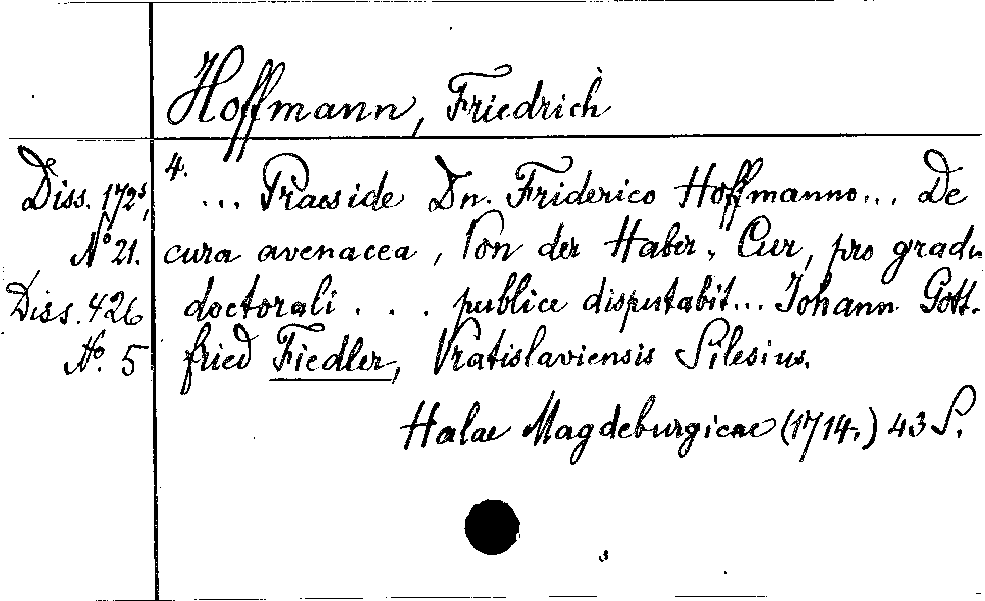 Hoffmann, Friedrich
4.
Diss. 172⁵, ... Praeside Dn. Friderico Hoffmanno... De
Nº 21. cura avenacea, Von der Haber-Cur, pro gradu
Diss. 426 doctorali . . . publice disputabit... Johann Gott-
Nº. 5 fried Fiedler, Vratislaviensis Silesius.
Halae Magdeburgicae (1714.) 43 S.